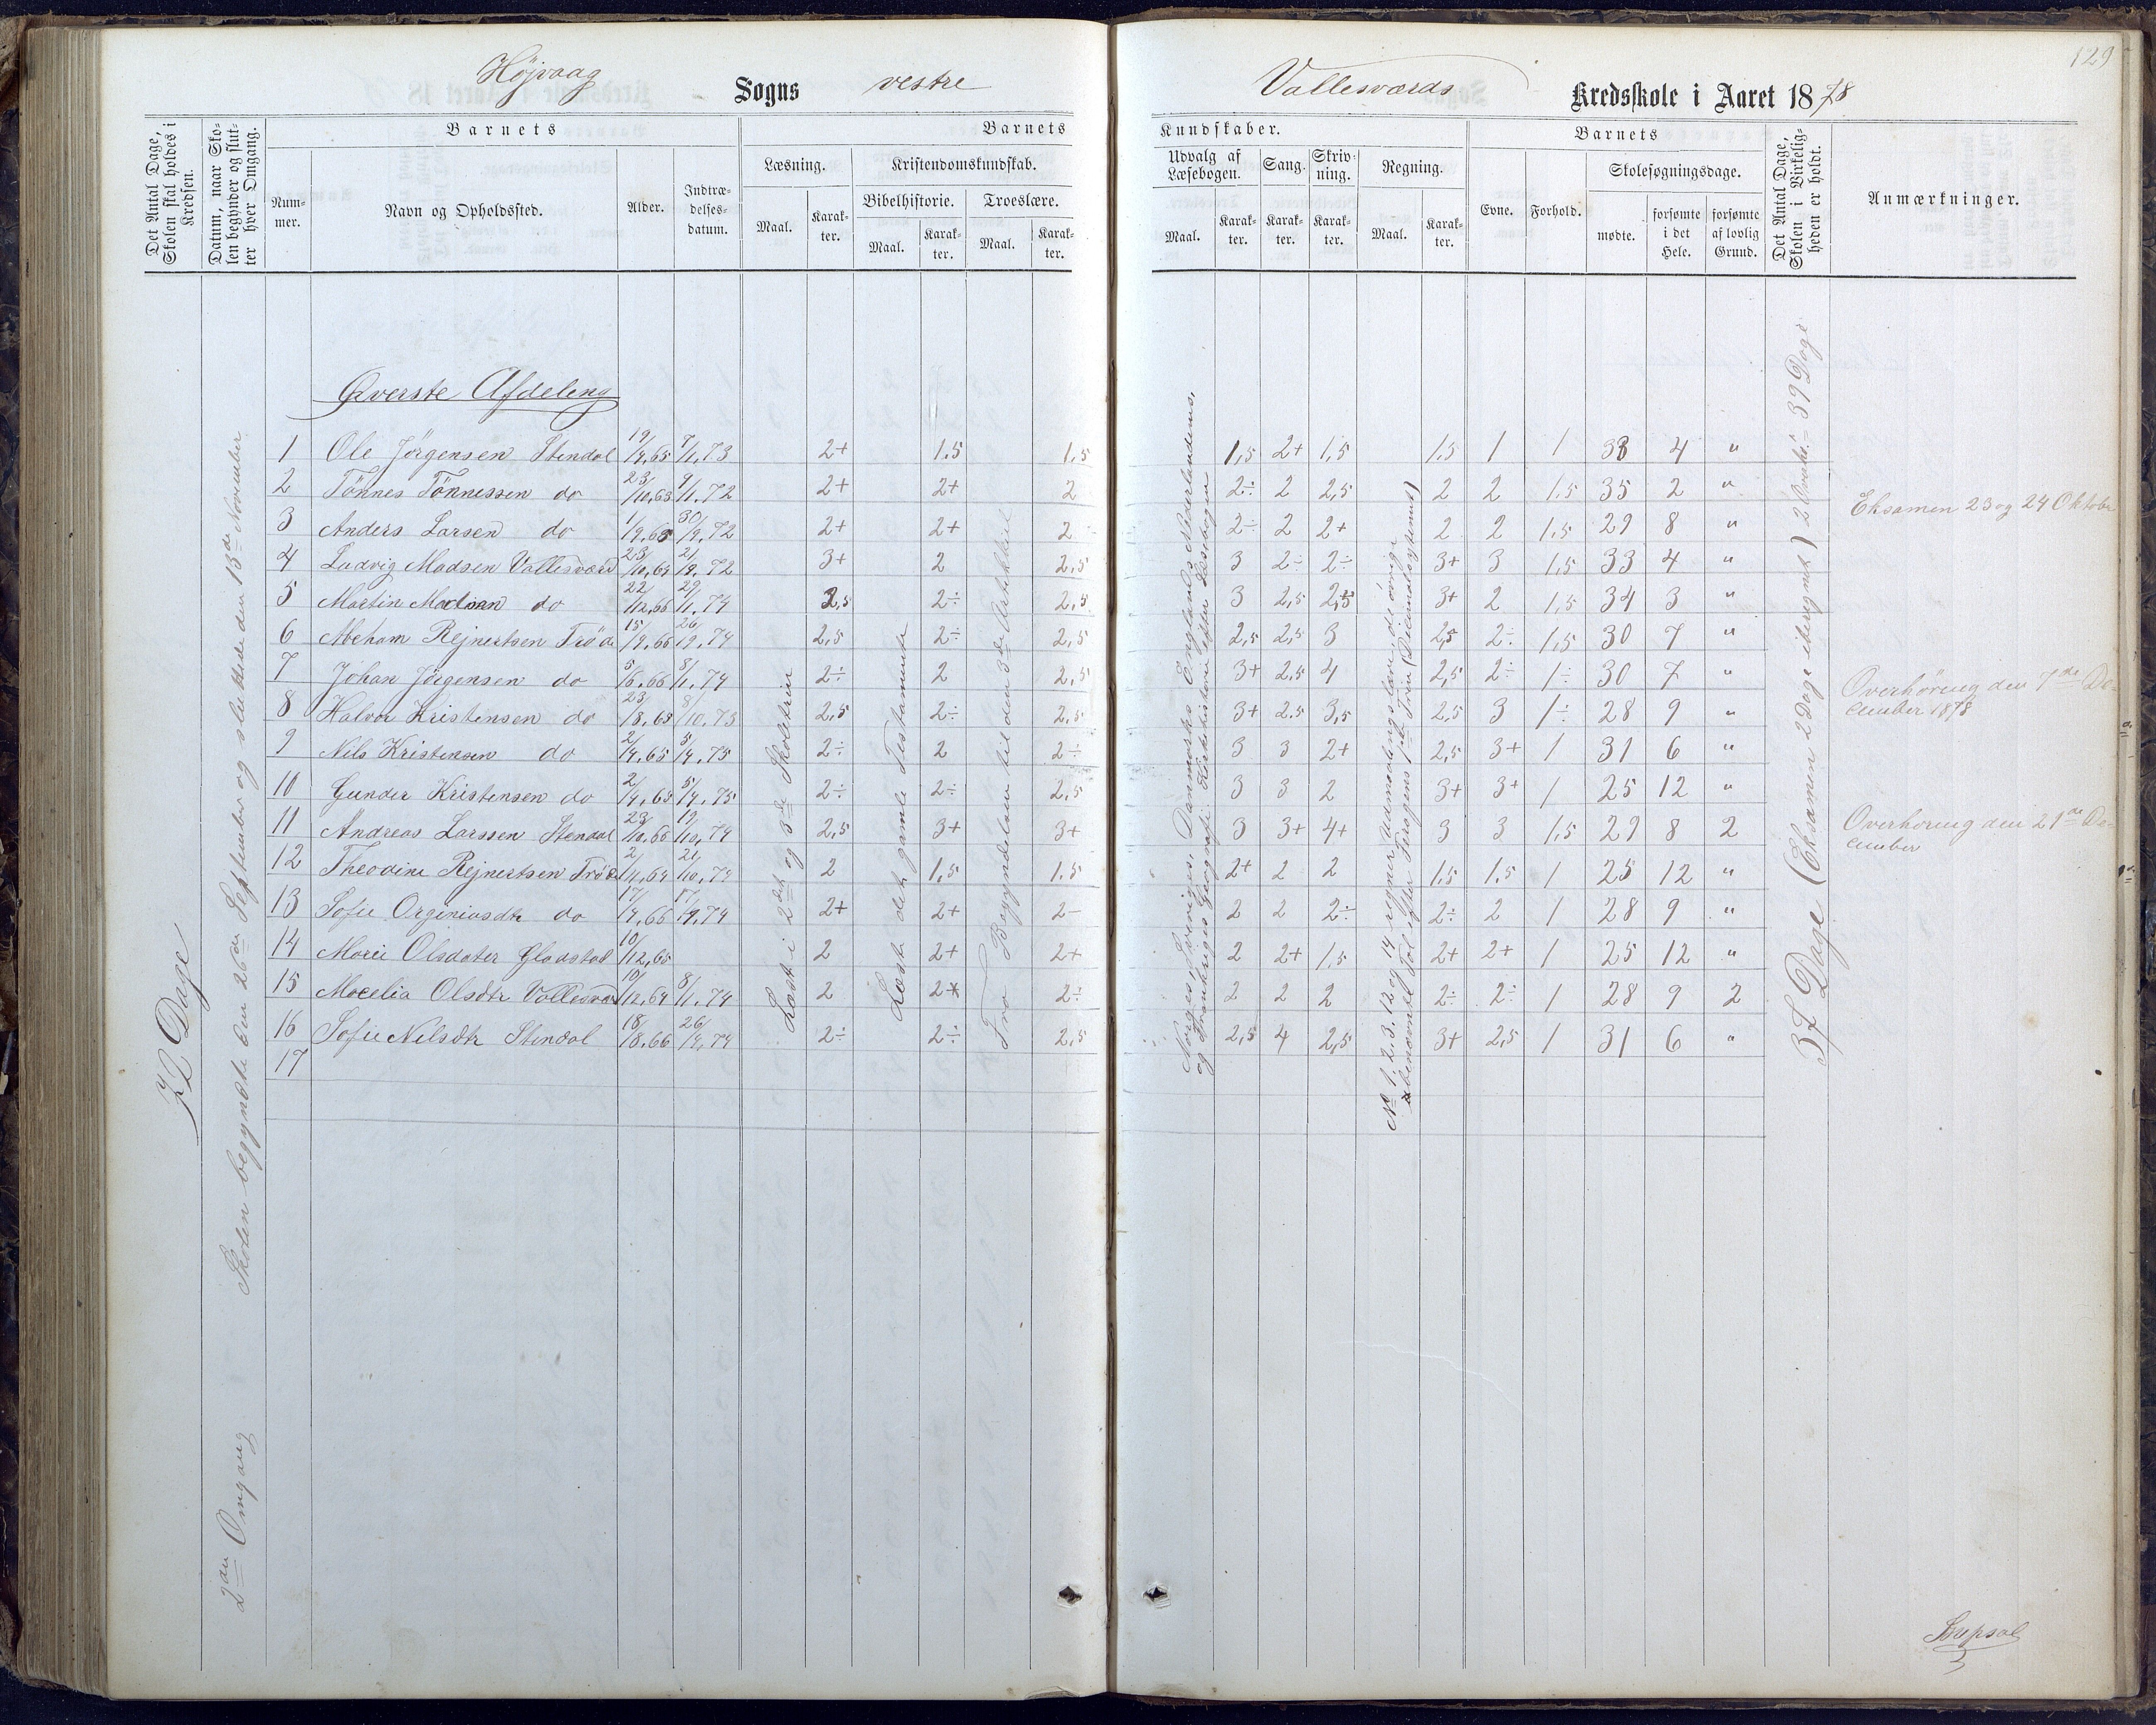 129
Højvaag Sogns vestre Vallesværds Kredsskole i Aaret 1878
Det Antal Dage, Skolen skal holdes i Kredsen.
Datum, naar Skolen begynder og slutter hver Omgang.
Barnets
Nummer.
Navn og Opholdssted.
Alder.
Indtrædelsesdatum.
Barnets Kundskaber.
Læsning.
Maal.
Karakter.
Kristendomskundskab.
Bibelhistorie.
Maal.
Karakter.
Troeslære.
Maal.
Karakter.
Udvalg af Læsebogen.
Maal.
Karakter.
Sang.
Karakter.
Skrivning.
Karakter.
Regning.
Maal.
Karakter.
Barnets
Evne.
Forhold.
Skolesøgningsdage.
mødte.
forsømte i det Hele.
forsømte af lovlig Grund.
Det Antal Dage, Skolen i Virkeligheden er holdt.
Anmærkninger.
72 Dage
2den Omgang Skolen begyndte den 26de September og sluttede den 13de November
Øverste Afdeling
1 Ole Jörgensen Stendal 19/4.65 7/1.73 2+ 1.5 1.5 1,5 2+ 1,5 1.5 1 1 33 4 "
2 Tönnes Tönnessen do 23/10.63 9/1.72 2+ 2+ 2 2÷ 2 2,5 2 2 1.5 35 2 "
3 Anders Larsen do 1/9.65 30/9.72 2+ 2+ 2 2÷ 2 2+ 2 2 1,5 29 8 "
4 Ludvig Madsen Vallesværd 23/10.64 21/9.72 3+ 2 2,5 3 2÷ 2÷ 3+ 3 1,5 33 4 "
5 Martin Madsen do 22/12.66 29/1.74 2,5 2÷ 2,5 3 2,5 2,5 3+ 2 1,5 34 3 "
6 Abeham Rejnertsen Tröde 15/9.66 26/9.74 2,5 2÷ 2,5 2,5 2,5 3 2,5 2÷ 1,5 30 7 "
7 Johan Jörgensen do 5/6.66 8/1.74 2÷ 2 2,5 3+ 2.5 4 2,5 2÷ 1÷ 30 7 "
8 Halvor Kristensen do 23/8.68 8/10.73 2,5 2÷ 2,5 3+ 2.5 3,5 2,5 3 1÷ 28 9 "
9 Nils Kristensen do 2/4.65 5/4.75 2÷ 2 2÷ 3 3 2+ 2,5 3+ 1 31 6 "
10 Gunder Kristensen do 2/4.65 5/4.75 2÷ 2÷ 2,5 3 3 2 3+ 3+ 1 25 12 "
11 Andreas Larssen Stendal 23/10.66 19/10.74 2,5 3+ 3+ 3 3+ 4+ 3 3 1,5 29 8 2
12 Theodine Rejnertsen Tröde 2/1.64 21/10.74 2 1,5 1.5 2+ 2 2 1.5 1.5 1 25 12 "
13 Sofie Orginiusdtr do 17/4.66 17/9.74 2+ 2+ 2- 2 2 2÷ 2÷ 2 1 28 9 "
14 Marie Olsdater Gladstad 10/12.65 2 2+ 2+ 2 2+ 1.5 2+ 2+ 1 25 12 "
15 Olsdtr Vallesværd 10/12.64 8/1.74 2 2+ 2÷ 2 2 2 2÷ 2÷ 1 28 9 2
16 Sofie Nilsdtr Stendal 18/8.66 26/9.74 2÷ 2÷ 2,5 2,5 4 2,5 3+ 2,5 1 31 6 "
17
Læst i 2det og 3de Skoletrin
Læst det gamle Testamente
Fra Begyndelsen til den 3de Artikkel
Norges, Sveriges, Danmarks Englands Nederlandenes,
og Frankriges Geografi. Kirkehistorie efter Læsebogen
No 1. 2. 3. 12 og 14 regner de övrige
ubenævnte Tal efter Trogens 1ste Trin (Decimalsystemet)
37 Dage (Eksamen 2 Dage iberegnet) 2 Overhör. = 39 Dage
Eksamen 23 og 24 Oktober
Overhöring den 7de De-
cember 1878
Overhöring den 21de De-
cember